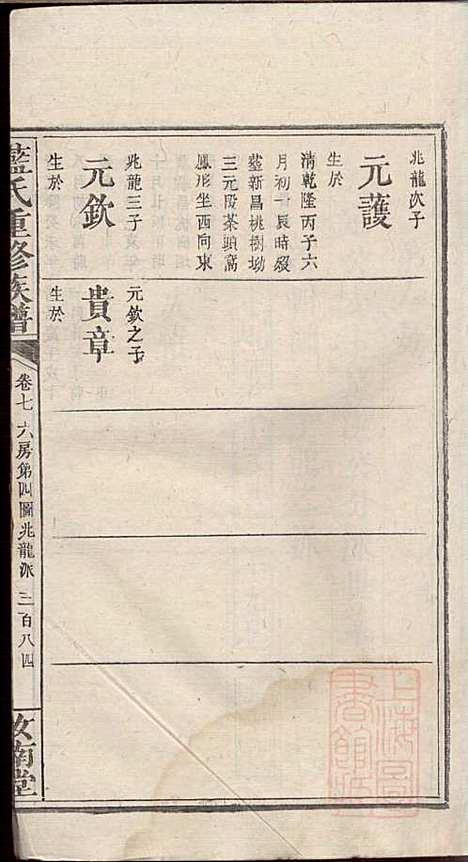 兆龍次子
元護
生於
清乾隆丙子六
月初一辰時歿
塟新昌桃樹坳
三元段茶頭窩
鳳形坐西向東
兆龍三子
元欽
生於
元欽之子
貴章
生於
藍氏重修族譜
卷七 六房第四圖兆龍派 三百八四
汝南堂
上海圖書館藏